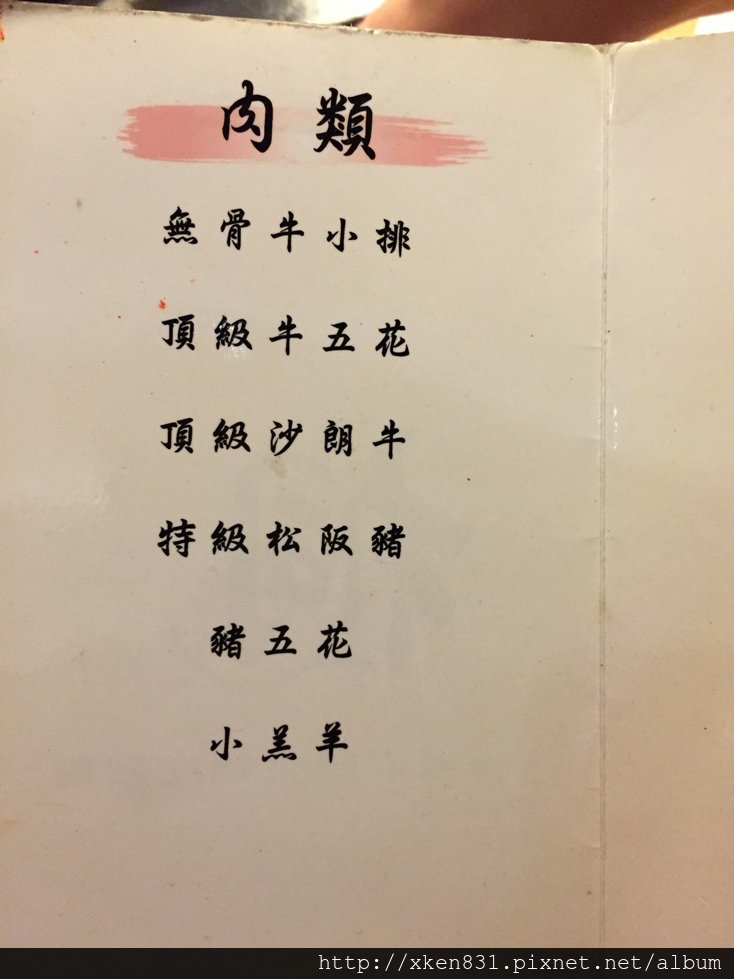 肉類
無骨牛小排
頂級牛五花
頂級沙朗牛
特級松阪豬
豬五花
小羔羊
http://xken831.pixnet.net/album